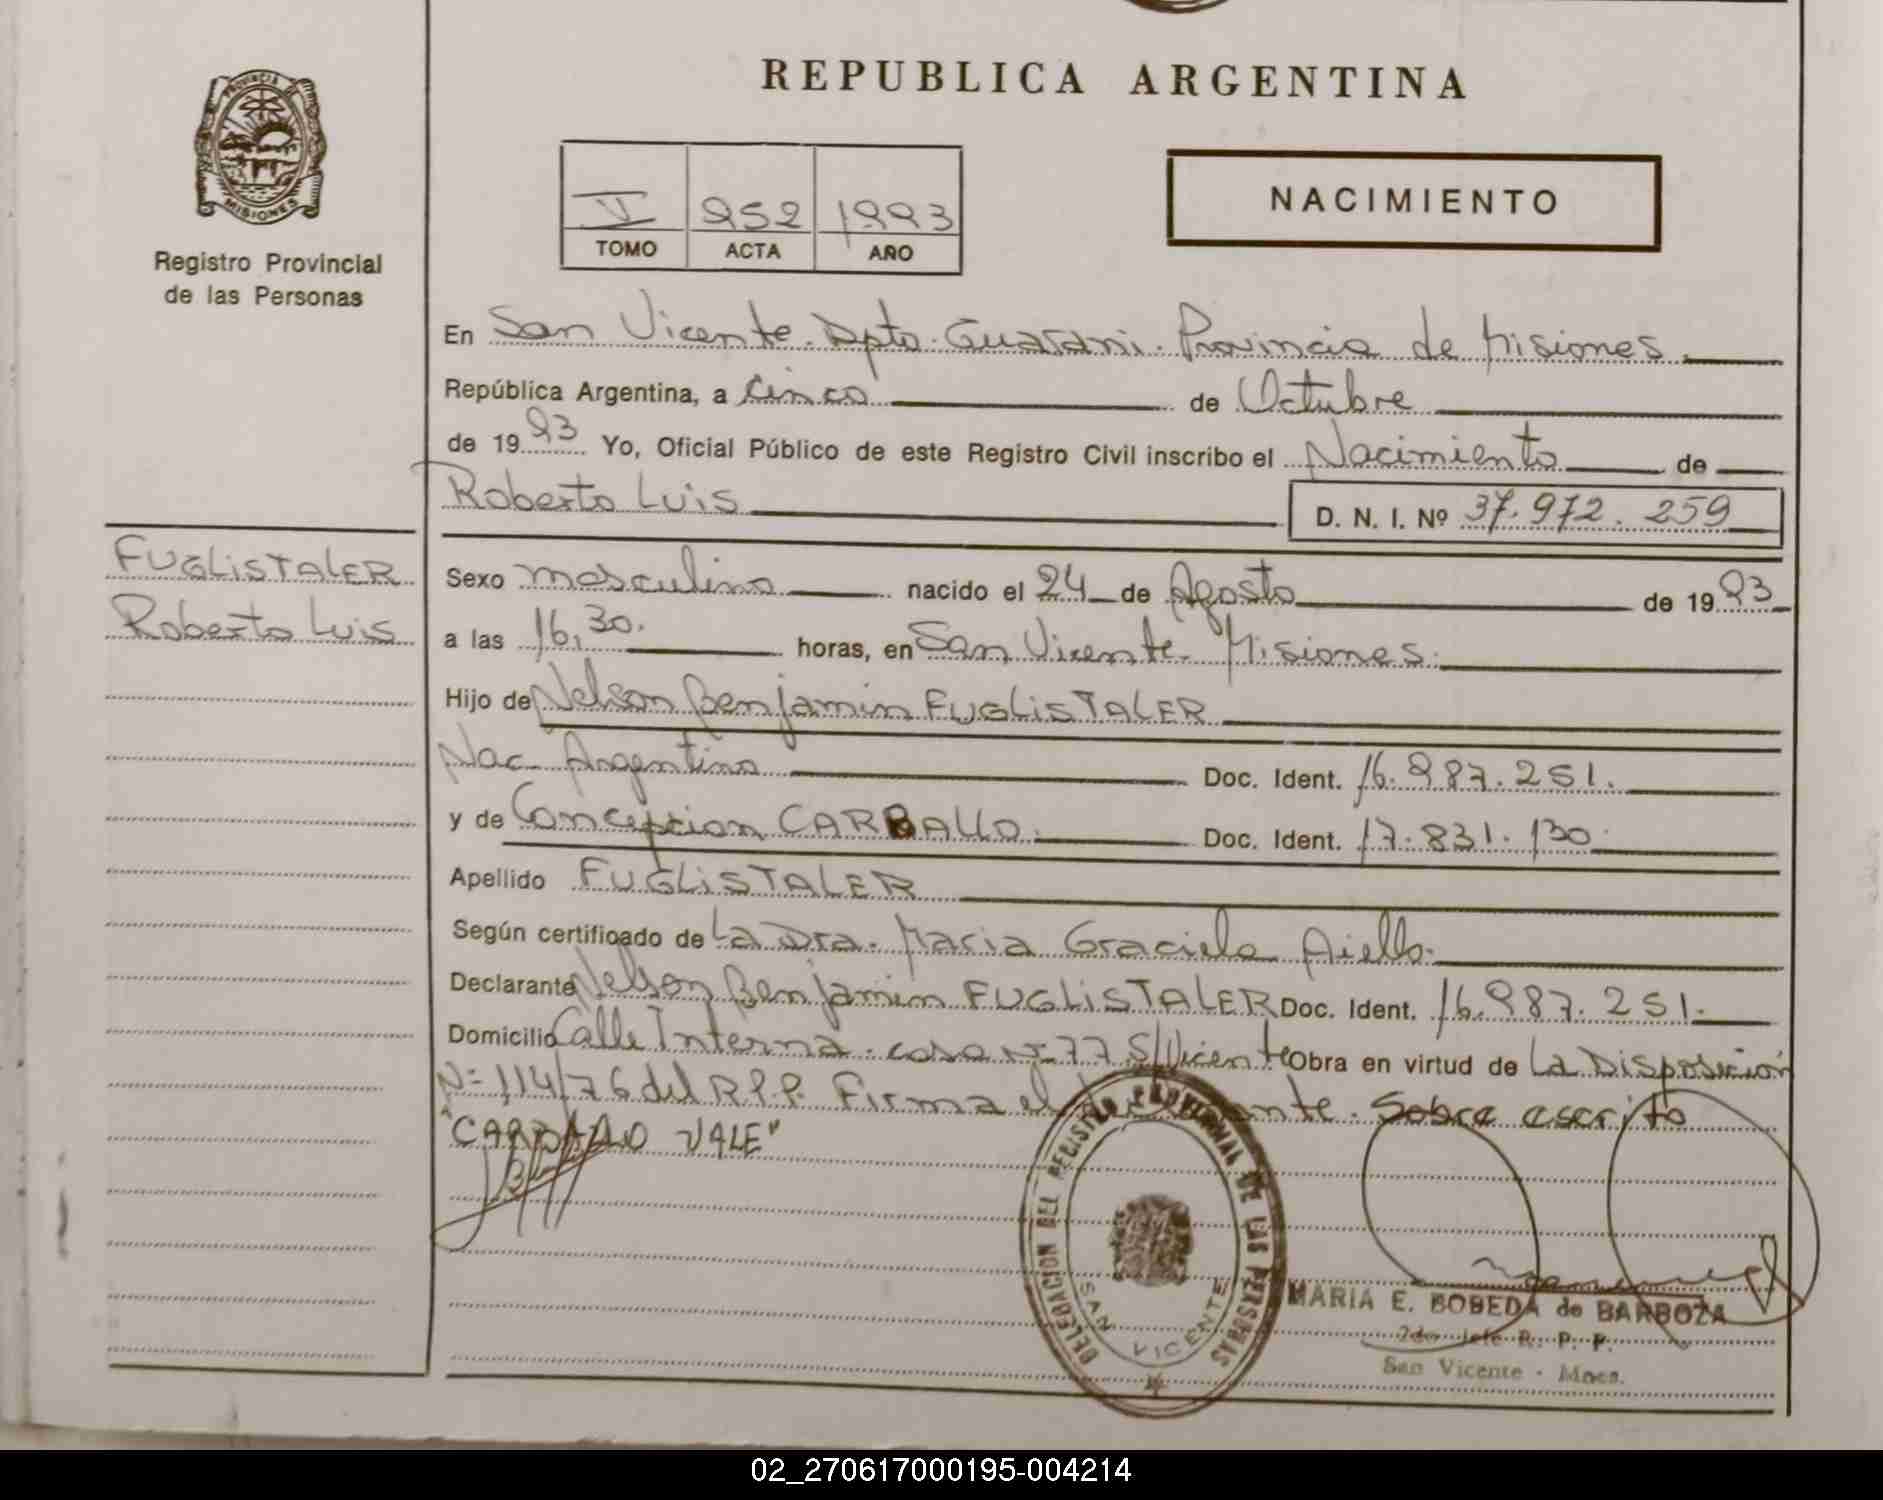 REPUBLICA ARGENTINA
PROVINCIA
MISIONES
Registro Provincial
de las Personas
V 952 1993
TOMO ACTA AÑO
NACIMIENTO
En San Vicente. Dpto. Guarani. Provincia de Misiones.
República Argentina, a cinco de Octubre
de 1993 Yo, Oficial Público de este Registro Civil inscribo el Nacimiento de
Roberto Luis D. N. I. Nº 37.972.259
FUGLISTALER
Roberto Luis
Sexo masculino nacido el 24 de Agosto de 1993
a las 16,30. horas, en San Vicente. Misiones.
Hijo de Nelson Benjamin FUGLISTALER
Nac. Argentina Doc. Ident. 16.987.251.
y de Concepcion CARBALLO. Doc. Ident. 17.831.130.
Apellido FUGLISTALER
Según certificado de La Dra. Maria Graciela Aiello.
Declarante Nelson Benjamin FUGLISTALER Doc. Ident. 16.987.251.
Domicilio Calle Interna. casa Nº 77 S/Vicente Obra en virtud de La Disposición
Nº 114/76 del R.P.P. Firma el declarante. Sobre escrito
"CARBALLO VALE"
DELEGACION DEL REGISTRO PROVINCIAL DE LAS PERSONAS
SAN VICENTE
MARIA E. BOBEDA de BARBOZA
2do Jefe R. P. P.
San Vicente - Mnes.
02_270617000195-004214